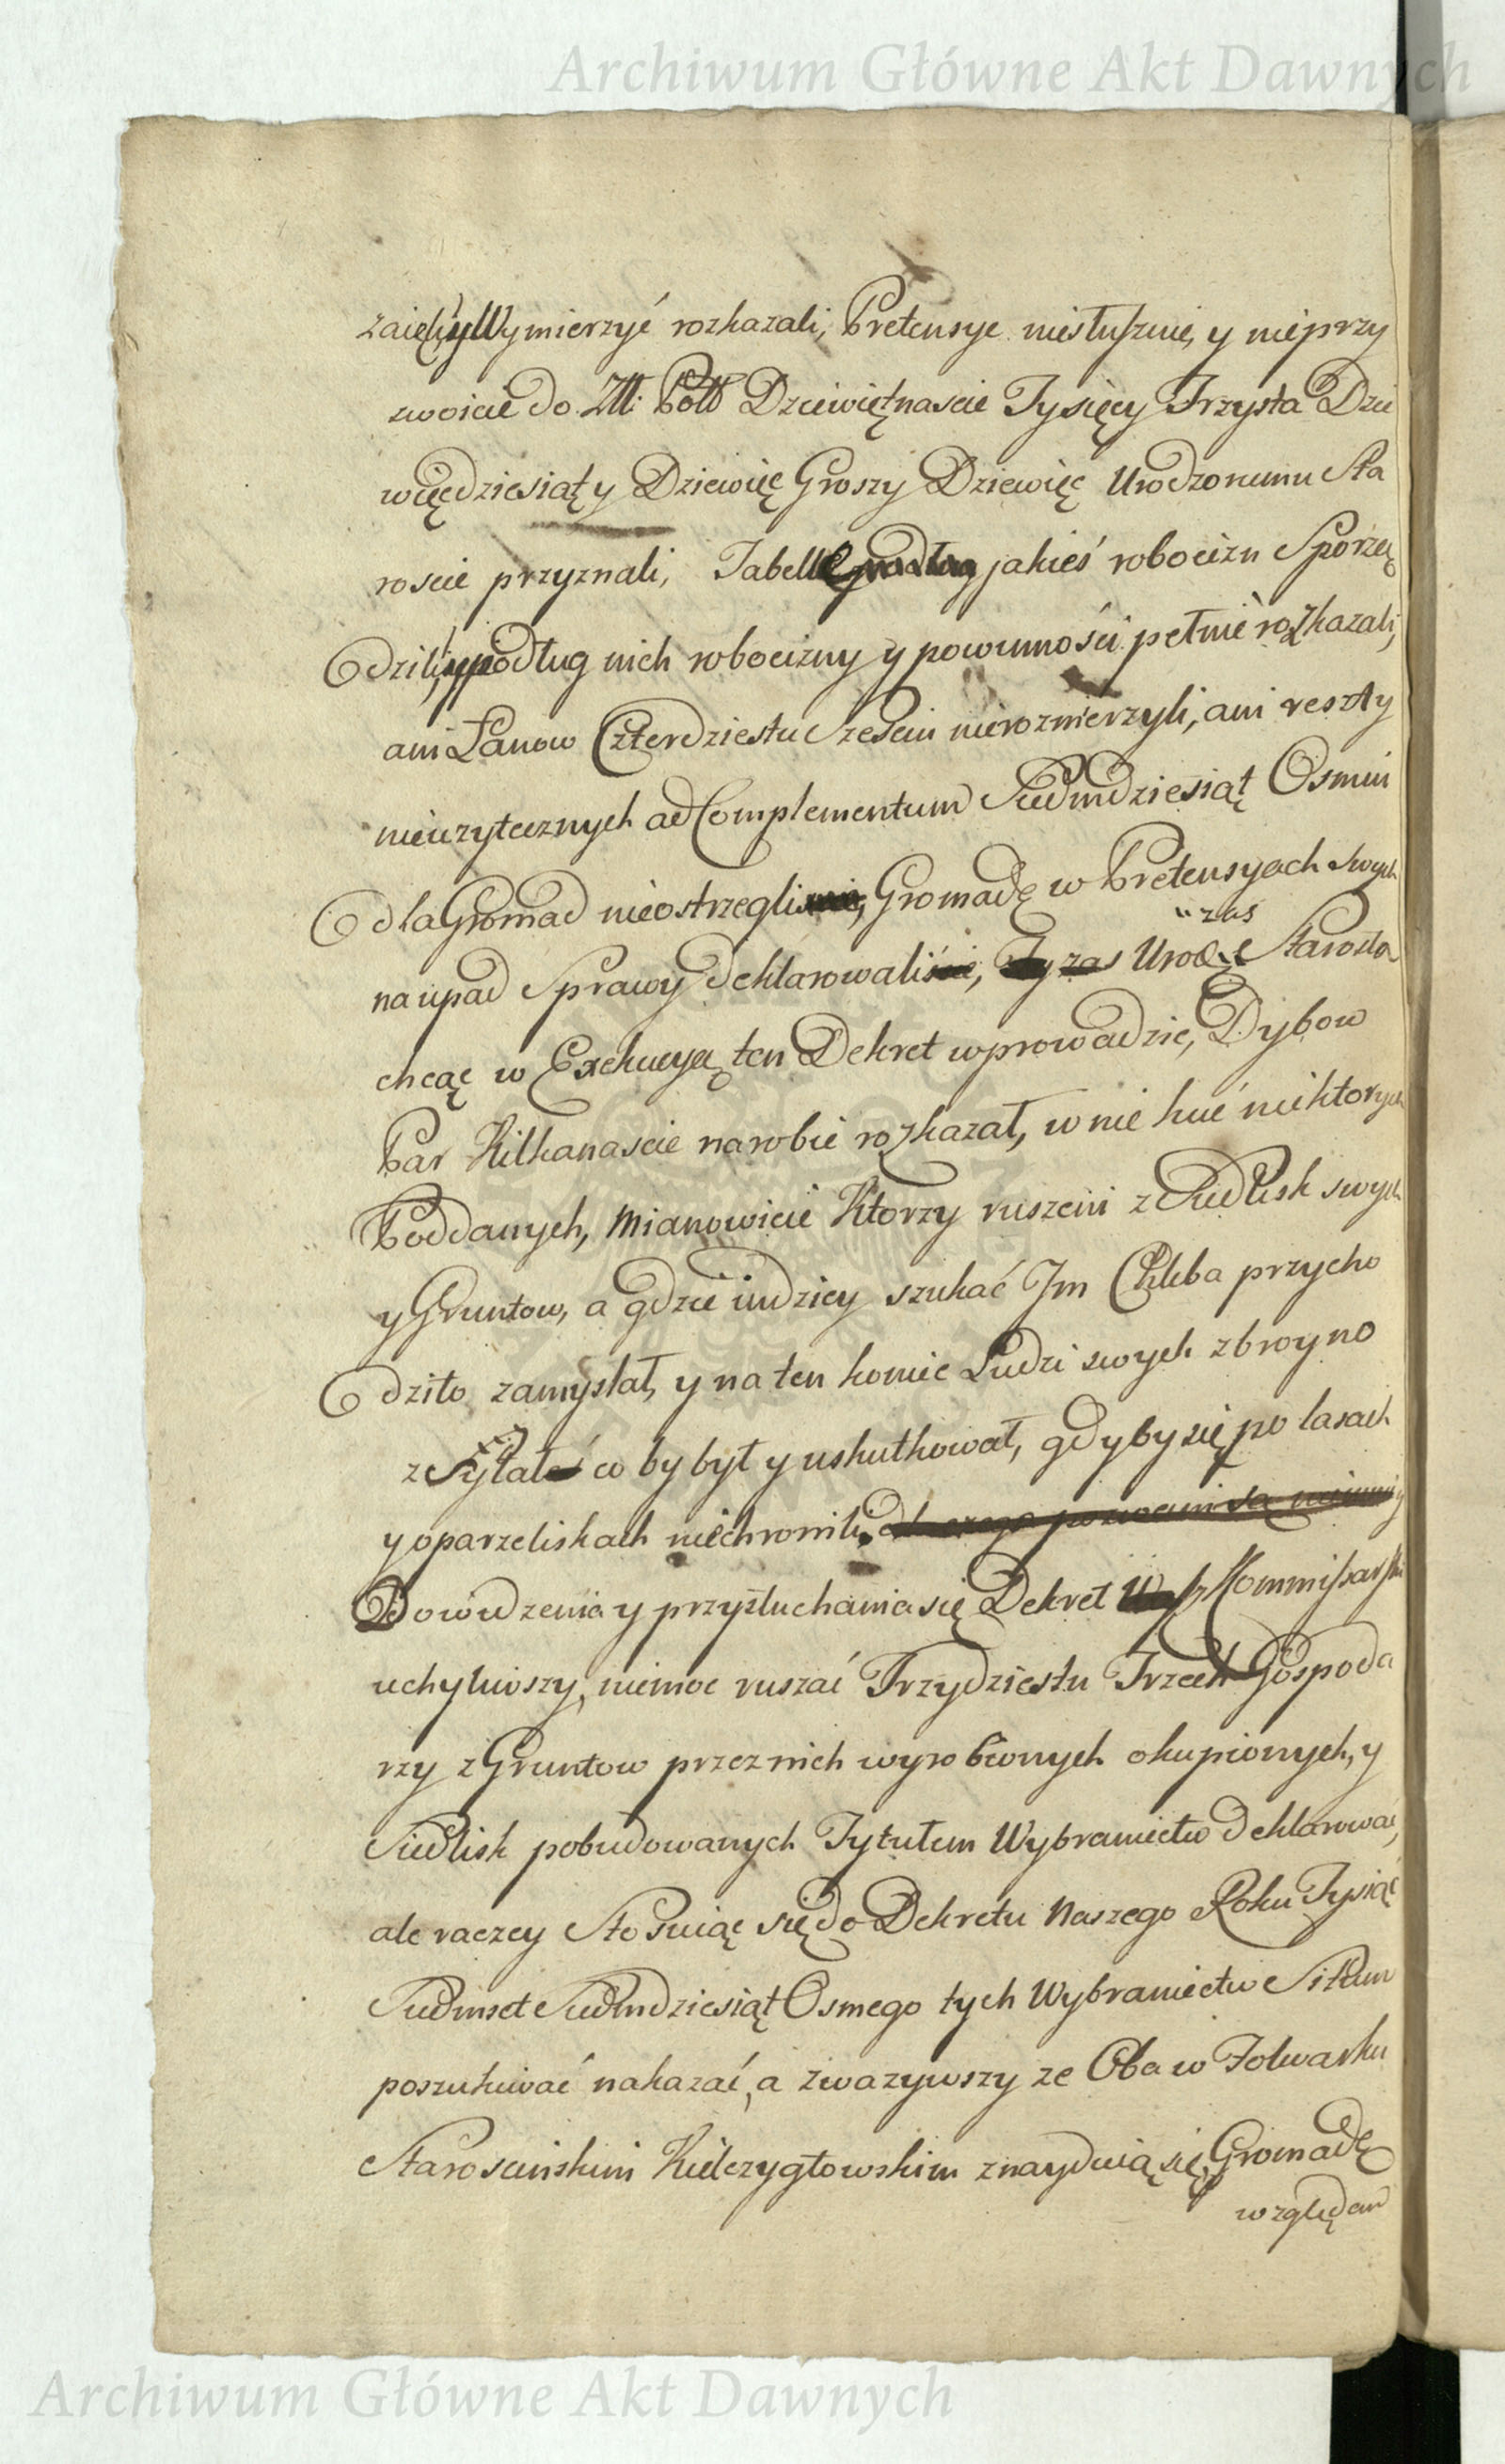 Archiwum Główne Akt Dawnych
zaięli, y Wymierzyć rozkazali, Pretensye niesłusznie, y nieprzy
zwoicie do Złł: Poll Dziewiętnascie Tysięcy Trzysta Dzie
więdziesiąt y Dziewięć Groszy Dziewięć Urodzonemu Sta
roscie przyznali, Tabelle podług jakieś robocizn Sporzą
dzili, y podług nich robocizny y powinności pełnić rozkazali,
ani Łanow Czterdziestu Sześciu nierozmierzyli, ani reszty
nieuzytecznych ad Complementum Siedmdziesiąt Osmiu
dla Gromad nieostrzegli, Gromadę w Pretensyach swych
zas
na upad Sprawy deklarowali, zas Urodz: Starosta
chcąc w Exekucyą ten Dekret wprowadzic, Dybow
Par Kilkanascie narobic rozkazał, w nie kuć niektorych
Poddanych, Mianowicie Ktorzy ruszeni z Siedlisk swych
y Gruntow, a gdzie indziey szukać Im Chleba przycho
dziło zamyslał, y na ten koniec Ludzi swych zbroyno
zsyłał co by był y uskutkował, gdyby się po lasach
y oparzeliskach niechronili, od czego pozwani są
Dowodzenia y przysłuchania się Dekret Kommissarski
uchyliwszy, niemoc ruszać Trzydziestu Trzech Gospoda
rzy z Gruntow przez nich wyrobionych okupionych, y
Siedlisk pobudowanych Tytułem Wybraniectw deklarować,
ale raczey Stosuiąc się do Dekretu Naszego Roku Tysiąc
Siedmset Siedmdziesiąt Osmego tych Wybraniectw Sitium
poszukiwać nakazać, a zwazywszy ze Oba w Folwarku
Staroscinskim Kielczygłowskim znayduią się, Gromadę
względem
Archiwum Główne Akt Dawnych